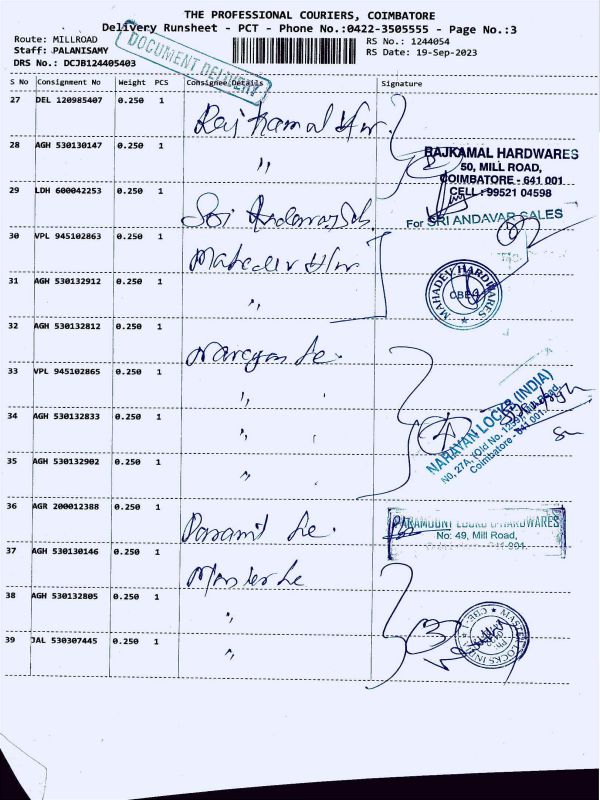 THE PROFESSIONAL COURIERS, COIMBATORE
Delivery Runsheet - PCT - Phone No.:0422-3505555 - Page No.:3
Route: MILLROAD
RS No.: 1244054
Staff: PALANISAMY
RS Date: 19-Sep-2023
DRS No.: DCJB124405403
DOCUMENT DELIVERY
S No Consignment No Weight PCS Consignee Details Signature
27 DEL 120985407 0.250 1
Rajkamal H/w
28 AGH 530130147 0.250 1 "
RAJKAMAL HARDWARES
50, MILL ROAD,
COIMBATORE - 641 001
CELL : 99521 04598
29 LDH 600042253 0.250 1
Sri Andavar Sales
For SRI ANDAVAR SALES
30 VPL 945102863 0.250 1
Mahadev H/w
31 AGH 530132912 0.250 1 "
MAHADEV HARDWARES
CBE-1
32 AGH 530132812 0.250 1
Narayan Lo.
33 VPL 945102865 0.250 1 "
34 AGH 530132833 0.250 1 "
NARAYAN LOCKS (INDIA)
No, 27A, (Old No. 1259), Big Bazaar Road,
Coimbatore - 641 001.
35 AGH 530132902 0.250 1 "
36 AGR 200012388 0.250 1
Paramt Lo.
PARAMOUNT LOCKS & HARDWARES
No: 49, Mill Road,
37 AGH 530130146 0.250 1
Master Lo
38 AGH 530132805 0.250 1 "
39 JAL 530307445 0.250 1 "
MASTER LOCKS INDIA
CBE-1